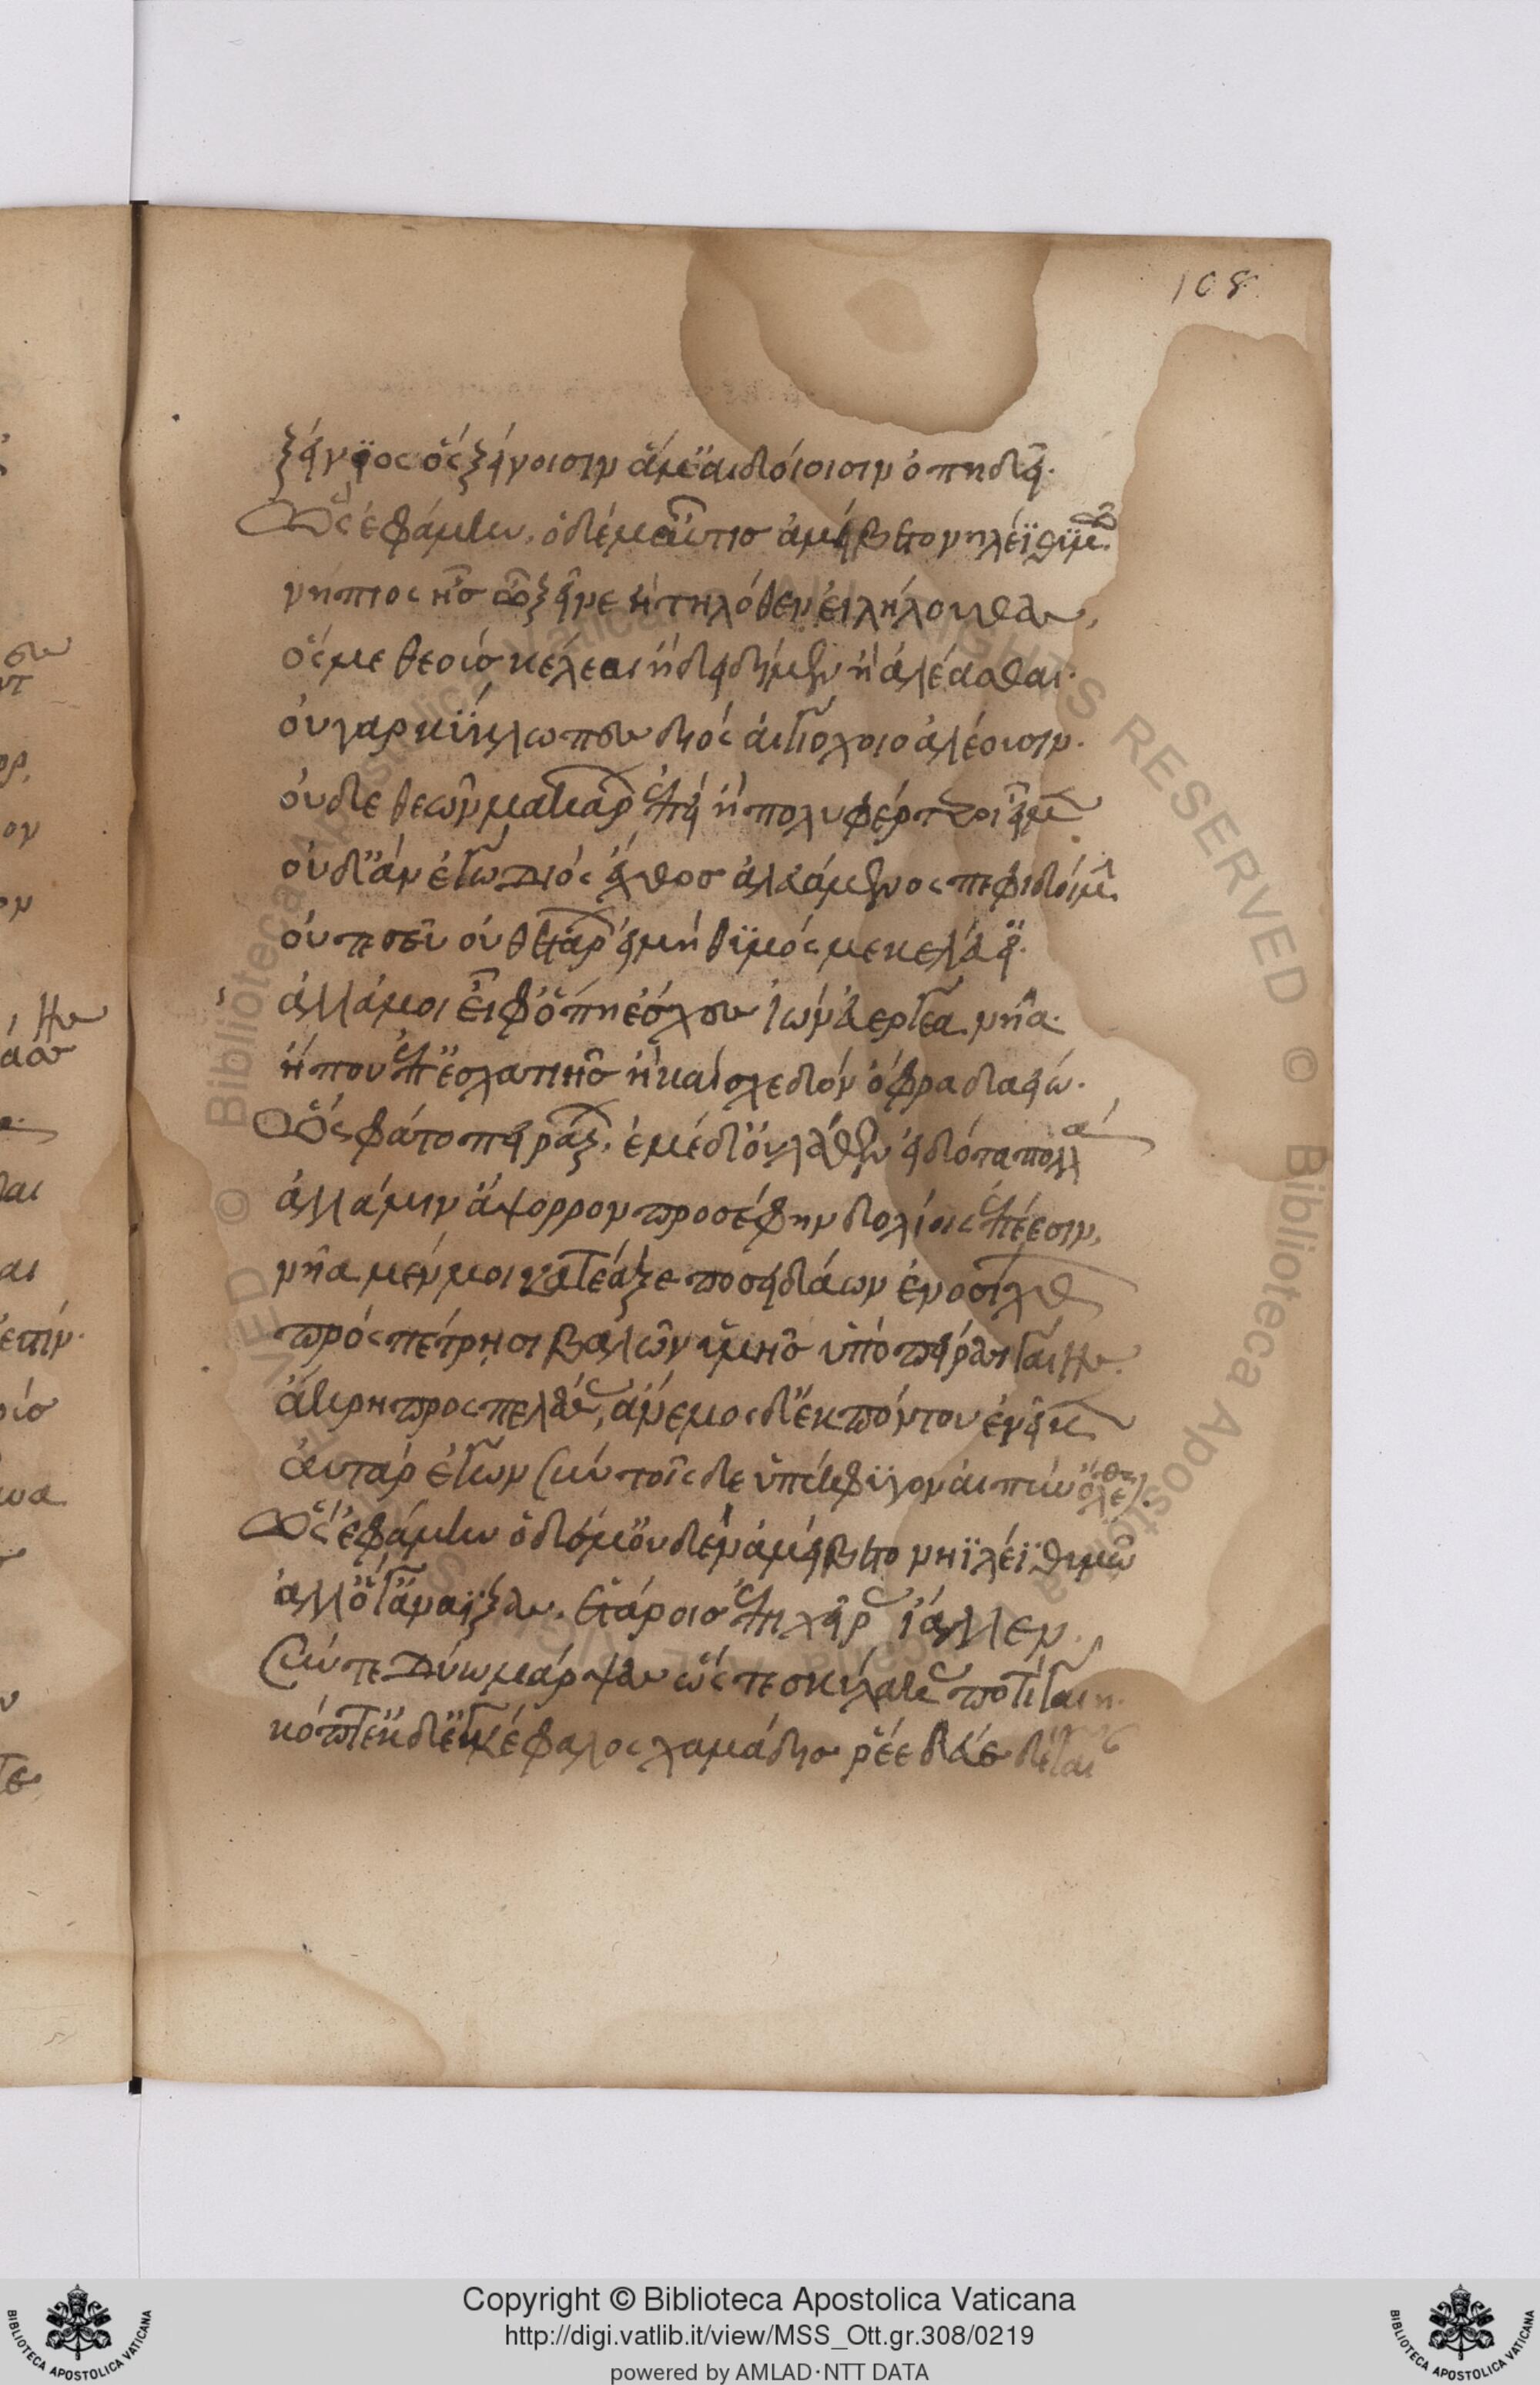 108
ξείνιος ὃς ξείνοισιν ἅμ' αἰδοίοισιν ὀπηδεῖ.
ὣς ἐφάμην, ὁ δέ μ' αὖτις ἀμείβετο νηλέϊ θυμῷ
νήπιος εἶς ὦ ξεῖνε ἢ τηλόθεν εἰλήλουθας,
ὅς με θεοὺς κέλεαι ἢ δειδήμεν ἢ ἀλέασθαι·
οὐ γὰρ κύκλωπες διὸς αἰγιόχοιο ἀλέουσιν.
οὐδὲ θεῶν μακάρων ἐπεὶ ἦ πολὺ φέρτεροί εἰμεν
οὐδ' ἂν ἐγὼ διὸς ἔχθος ἀλευάμενος πεφιδοίμην
οὔτε σεῦ οὔθ' ἑτάρων εἰ μὴ θυμός με κελεύει.
ἀλλά μοι εἴφ' ὅπῃ ἔσχες ἰὼν εὐεργέα νῆα·
ἤ που ἐπ' ἐσχατιῆς ἢ καὶ σχεδὸν ὄφρα δαείω.
ὣς φάτο πειράζων, ἐμὲ δ' οὐ λάθεν εἰδότα πολλά
ἀλλά μιν ἄψορρον προσέφην δολίοις ἐπέεσιν,
νῆα μέν μοι κατέαξε ποσειδάων ἐνοσίχθων
πρὸς πέτρῃσι βαλὼν ὑμῆς ὑπὸ πείρασι γαίης.
ἄκρῃ προσπελάσας, ἄνεμος δ' ἐκ πόντου ἔνεικεν
αὐτὰρ ἐγὼν σὺν τοῖσδε ὑπέκφυγον αἰπὺν ὄλεθρον.
ὣς ἐφάμην ὁ δέ μ' οὐδὲν ἀμείβετο νηλέϊ θυμῷ
ἀλλ' ὅγ' ἀναΐξας ἑτάροις ἐπὶ χεῖρας ἴαλλεν.
σὺν δὲ δύω μάρψας ὥς τε σκύλακας ποτὶ γαίῃ
κόπτ' ἐκ δ' ἐγκέφαλος χαμάδις ῥέε δεῦε δὲ γαῖαν
Copyright © Biblioteca Apostolica Vaticana
http://digi.vatlib.it/view/MSS_Ott.gr.308/0219
powered by AMLAD·NTT DATA